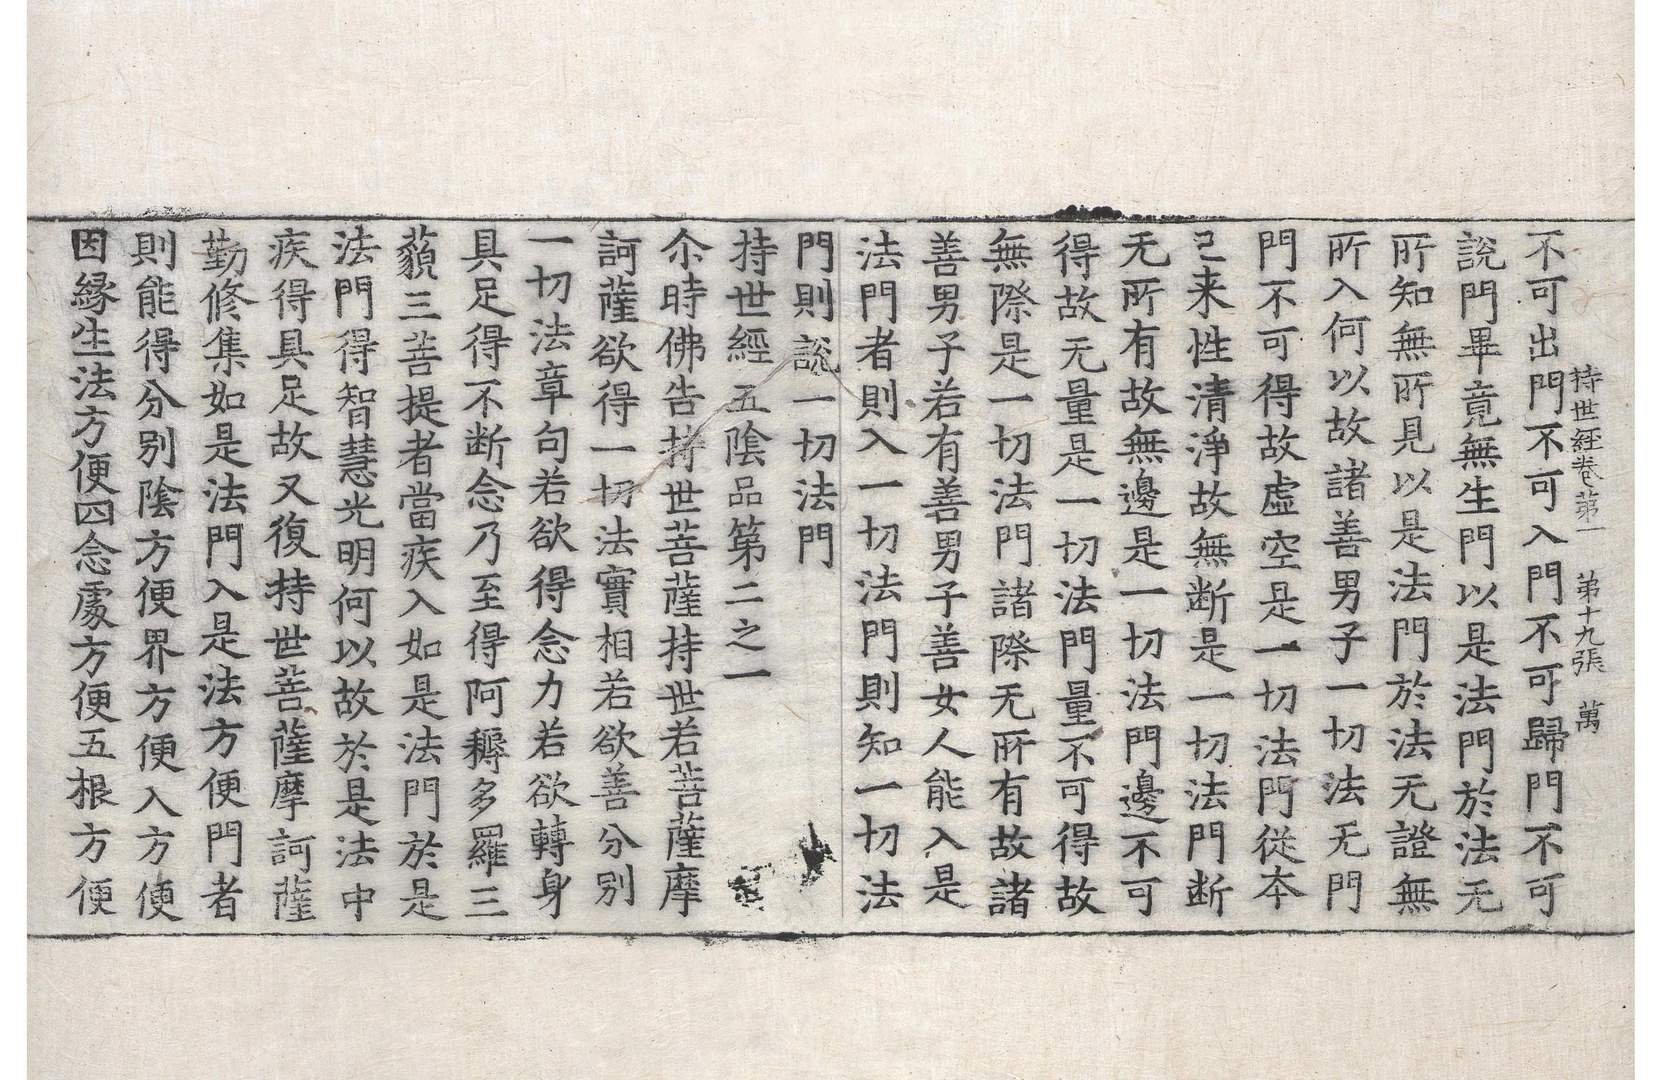 持世經卷第一 第十九張 萬
不可出門不可入門不可歸門不可
說門畢竟無生門以是法門於法无
所知無所見以是法門於法无證無
所入何以故諸善男子一切法无門
門不可得故虛空是一切法門從本
已来性清淨故無断是一切法門断
无所有故無邊是一切法門邊不可
得故无量是一切法門量不可得故
無際是一切法門諸際无所有故諸
善男子若有善男子善女人能入是
法門者則入一切法門則知一切法
門則說一切法門
持世經五陰品第二之一
尒時佛告持世菩薩持世若菩薩摩
訶薩欲得一切法實相若欲善分別
一切法章句若欲得念力若欲轉身
具足得不断念乃至得阿耨多羅三
藐三菩提者當疾入如是法門於是
法門得智慧光明何以故於是法中
疾得具足故又復持世菩薩摩訶薩
勤修集如是法門入是法方便門者
則能得分別陰方便界方便入方便
因緣生法方便四念處方便五根方便